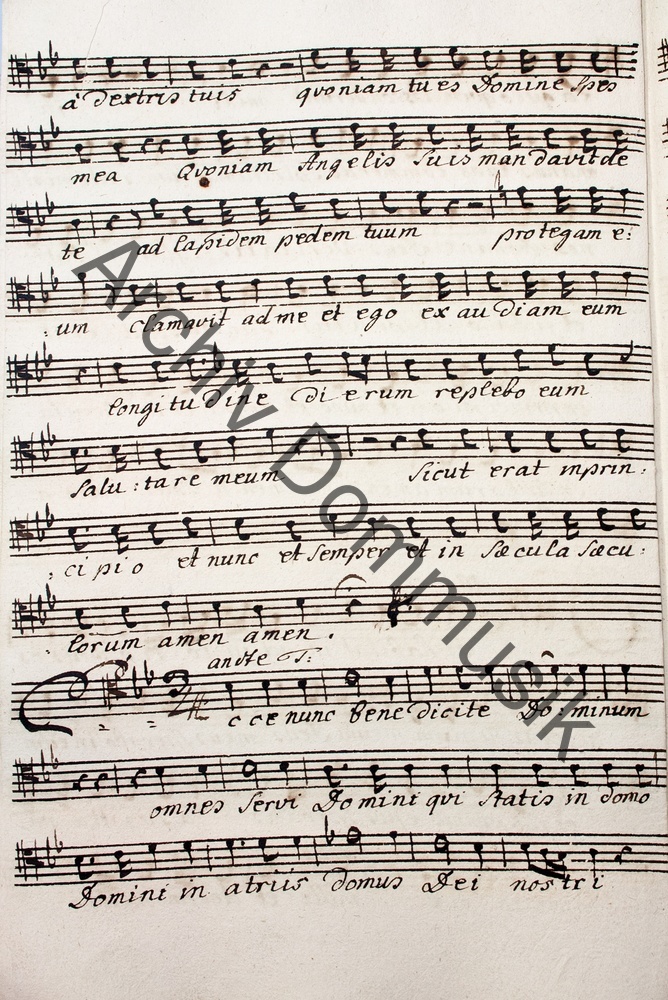 a dextris tuis quoniam tu es Domine spes
mea Quoniam Angelis suis mandavit de
te ad lapidem pedem tuum protegam e:
:um clamavit ad me et ego exaudiam eum
longitudine dierum replebo eum
salu:tare meum sicut erat in prin:
:cipio et nunc et semper et in sæcula sæcu:
:lorum amen amen.
andte T:
Ecce nunc benedicite Do:minum
omnes servi Domini qvi statis in domo
Domini in atriis domus Dei nostri
Archiv Dommusik